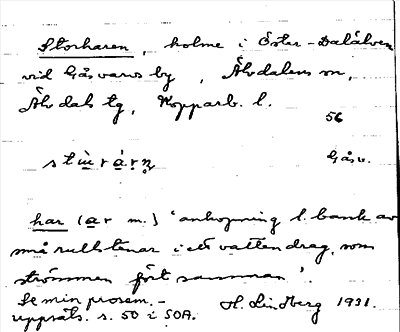 Storharen, holme i Öster-Dalälven
vid Gåsvarvs by, Älvdalens sn,
Älvdals tg, Kopparb. l.
56
Gåsv.
har (ar m.) 'anhopning l. bank av
små rullstenar i ett vattendrag, som
strömmen fört samman'.
Se min prosem.-
uppsats. s. 50 i SOA.
H. Lindberg 1931.